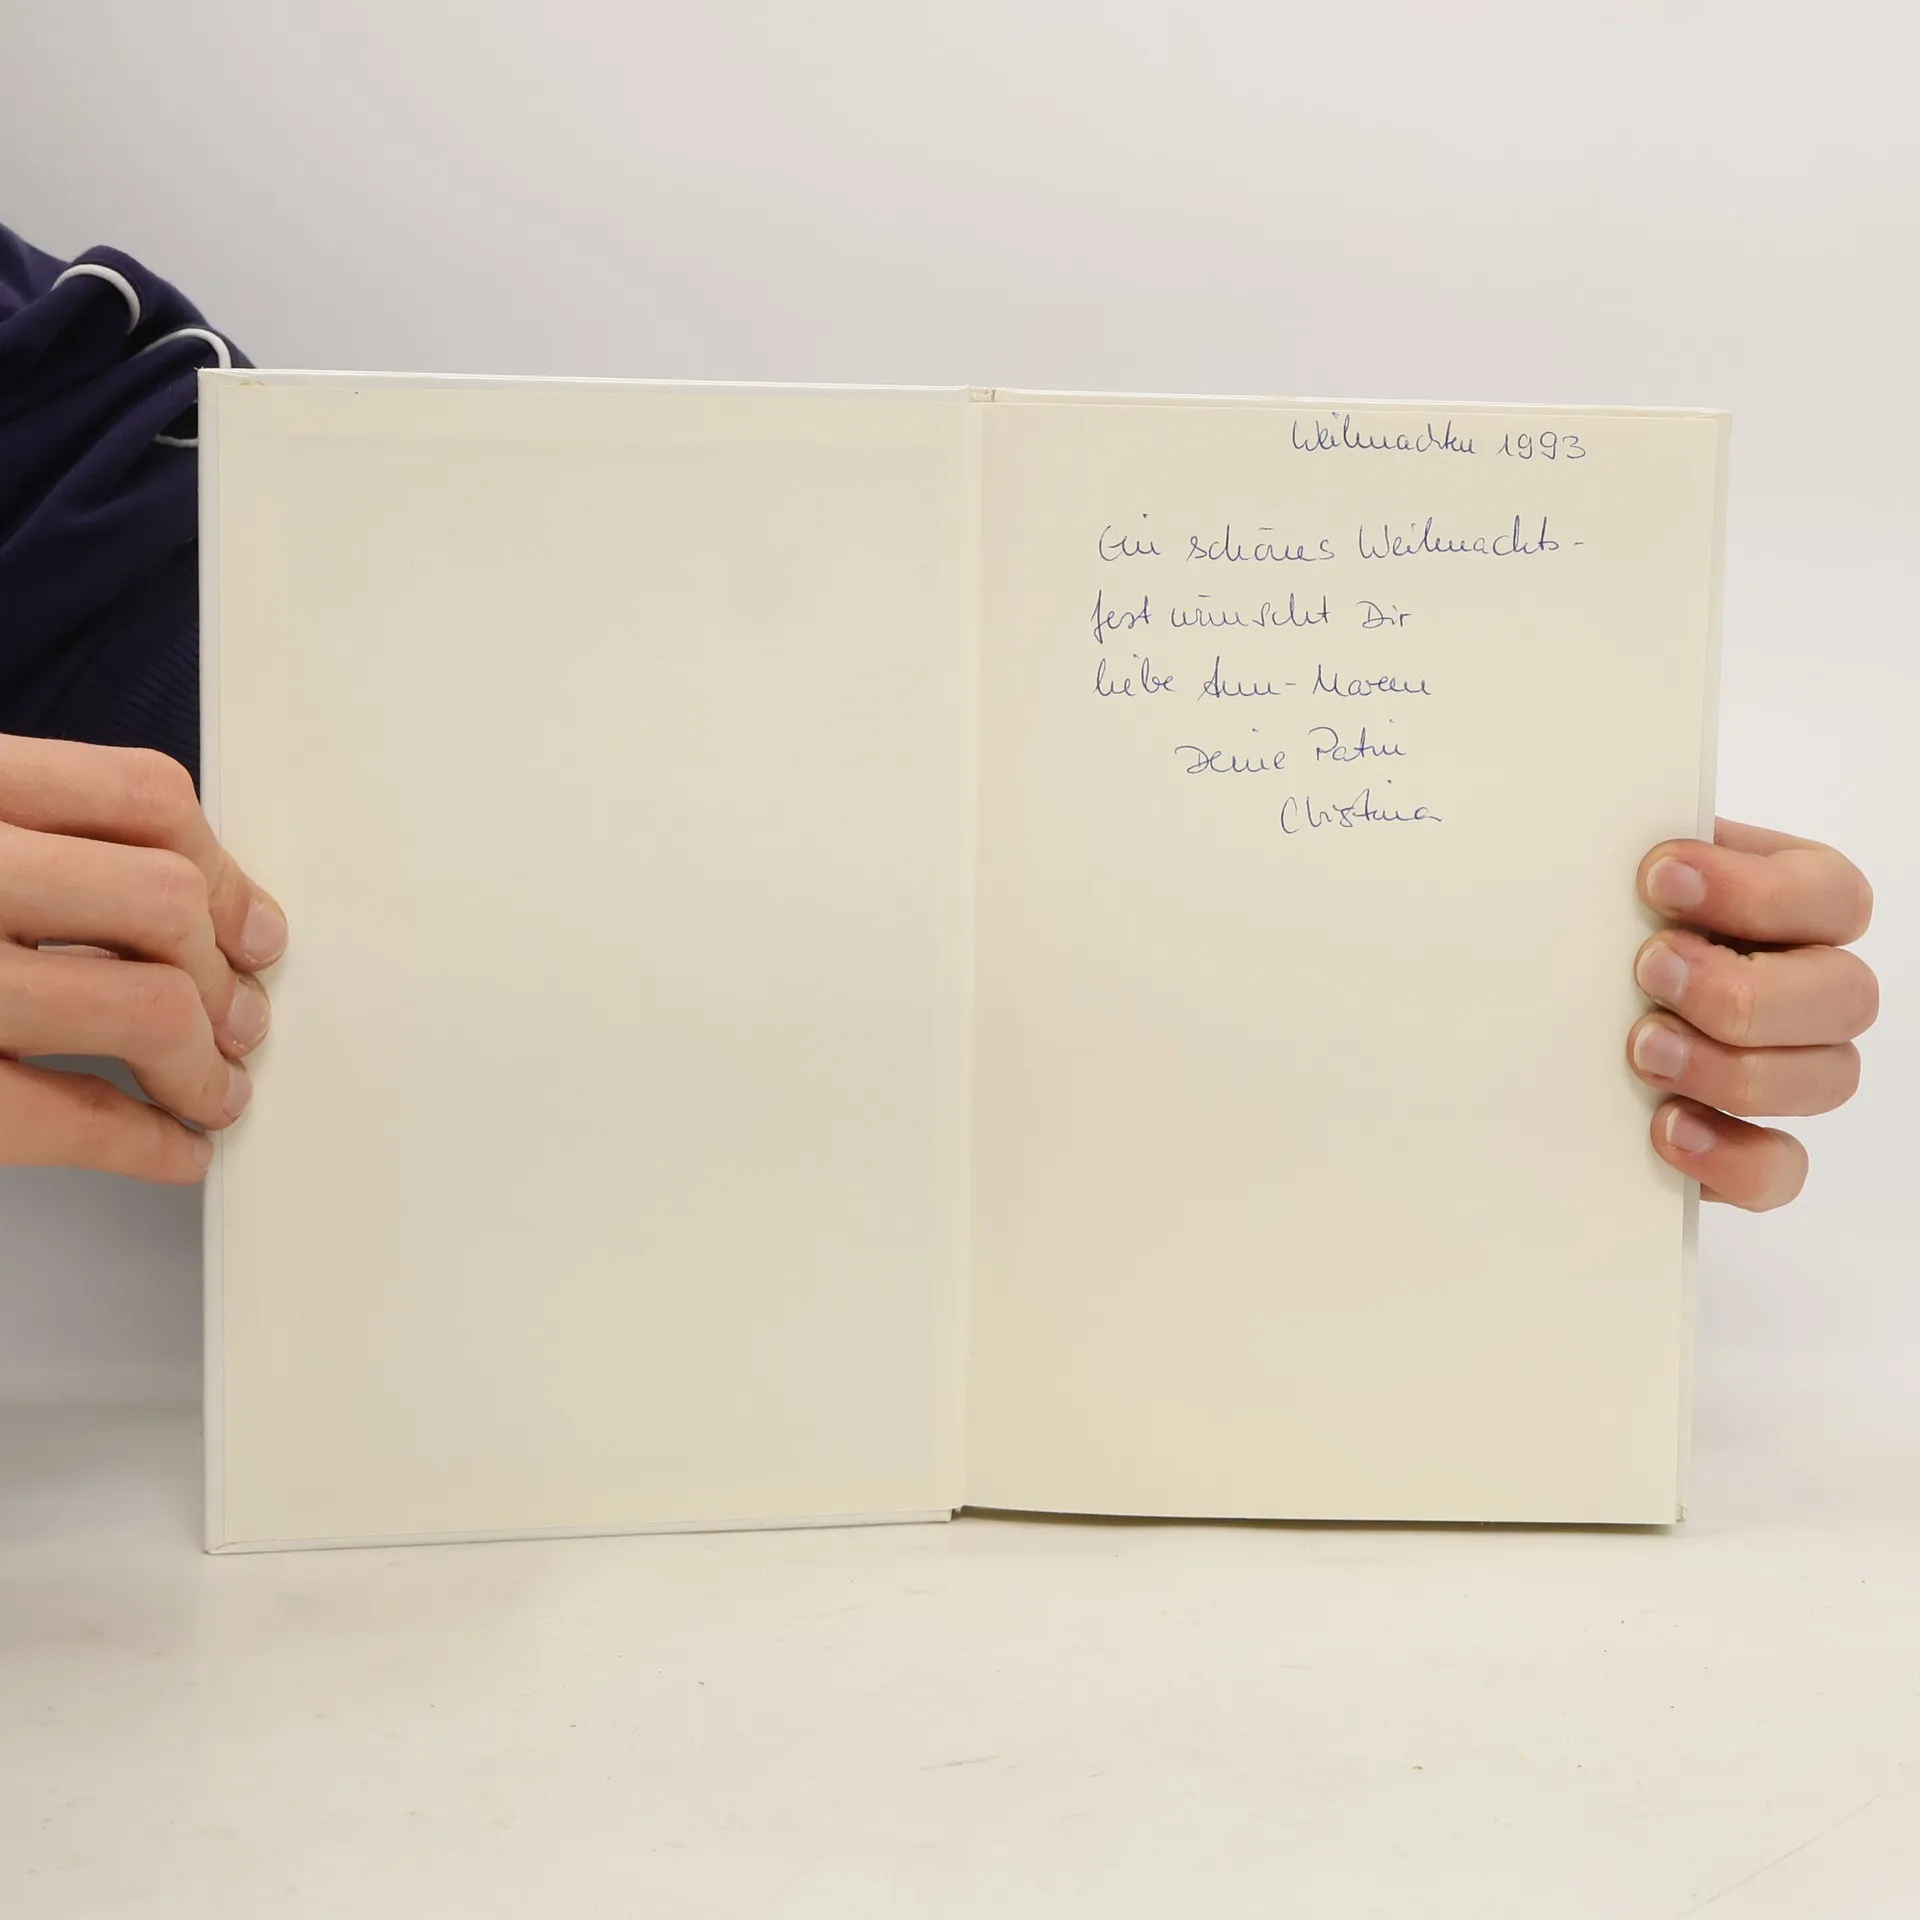 Weihnachten 1993
Ein schönes Weihnachts-
fest wünscht Dir
liebe Ann-Mareen
Deine Patin
Christina